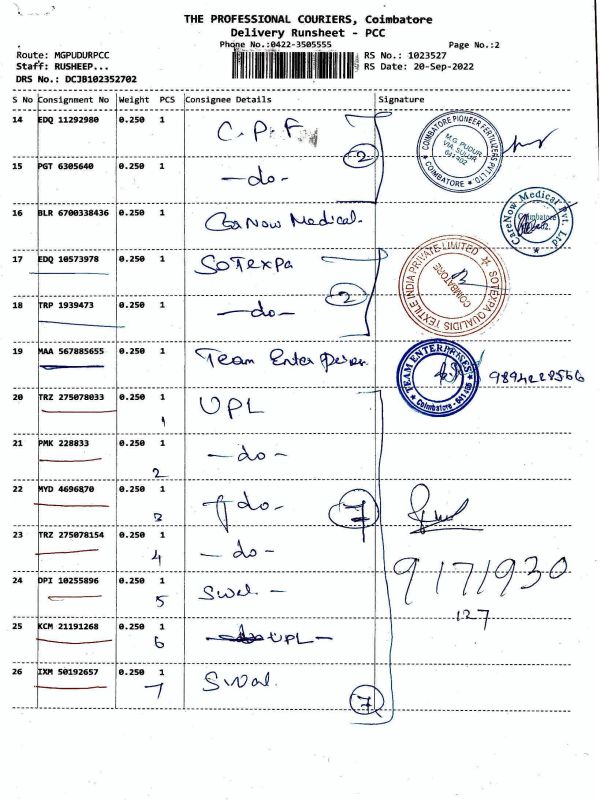 THE PROFESSIONAL COURIERS, Coimbatore
Delivery Runsheet - PCC
Phone No.:0422-3505555 Page No.:2
Route: MGPUDURPCC RS No.: 1023527
Staff: RUSHEEP... RS Date: 20-Sep-2022
DRS No.: DCJB102352702
S No Consignment No Weight PCS Consignee Details Signature
14 EDQ 11292980 0.250 1 C.P.F
COIMBATORE PIONEER FERTILIZERS PVT LTD
M.G. PUDUR
VIA. SULUR
641402
* COIMBATORE *
2
15 PGT 6305640 0.250 1 —do—
16 BLR 6700338436 0.250 1 CaNow Medical.
CareNow Medical Pvt. Ltd
Coimbatore
17 EDQ 10573978 0.250 1 SoTexpa
SOTEXPA QUALIDIS TEXTILE INDIA PRIVATE LIMITED
COIMBATORE
2
18 TRP 1939473 0.250 1 —do—
19 MAA 567885655 0.250 1 Team Enterperser
TEAM ENTERPRISES
* Coimbatore - 641 405 *
9894228566
20 TRZ 275078033 0.250 1 UPL
1
21 PMK 228833 0.250 1 —do—
2
22 MYD 4696870 0.250 1 do-
3
7
23 TRZ 275078154 0.250 1 —do—
4
9171930
127
24 DPI 10255896 0.250 1 Swel -
5
25 KCM 21191268 0.250 1 UPL —
6
26 IXM 50192657 0.250 1 Swal.
7
7